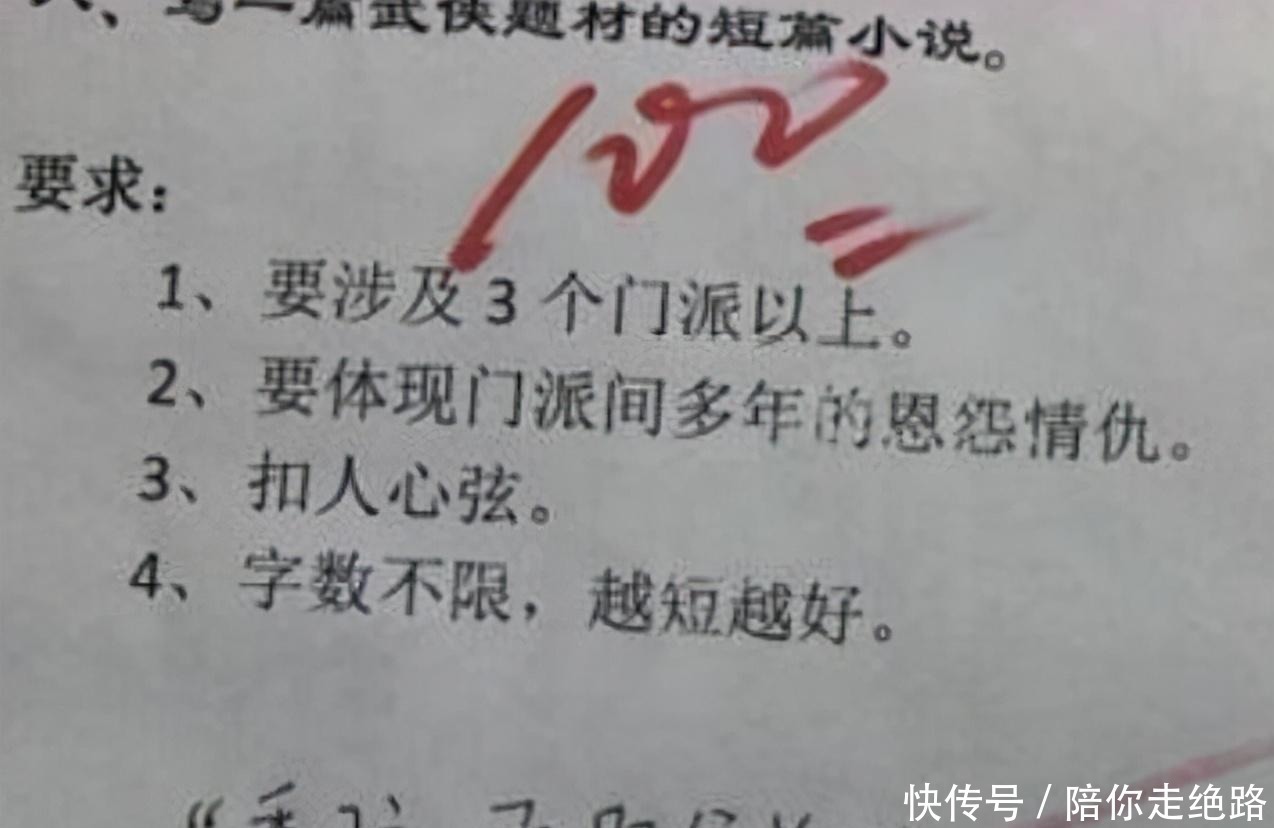 、写一篇武侠题材的短篇小说。
100
要求：
1、要涉及 3 个门派以上。
2、要体现门派间多年的恩怨情仇。
3、扣人心弦。
4、字数不限，越短越好。
快传号 / 陪你走绝路